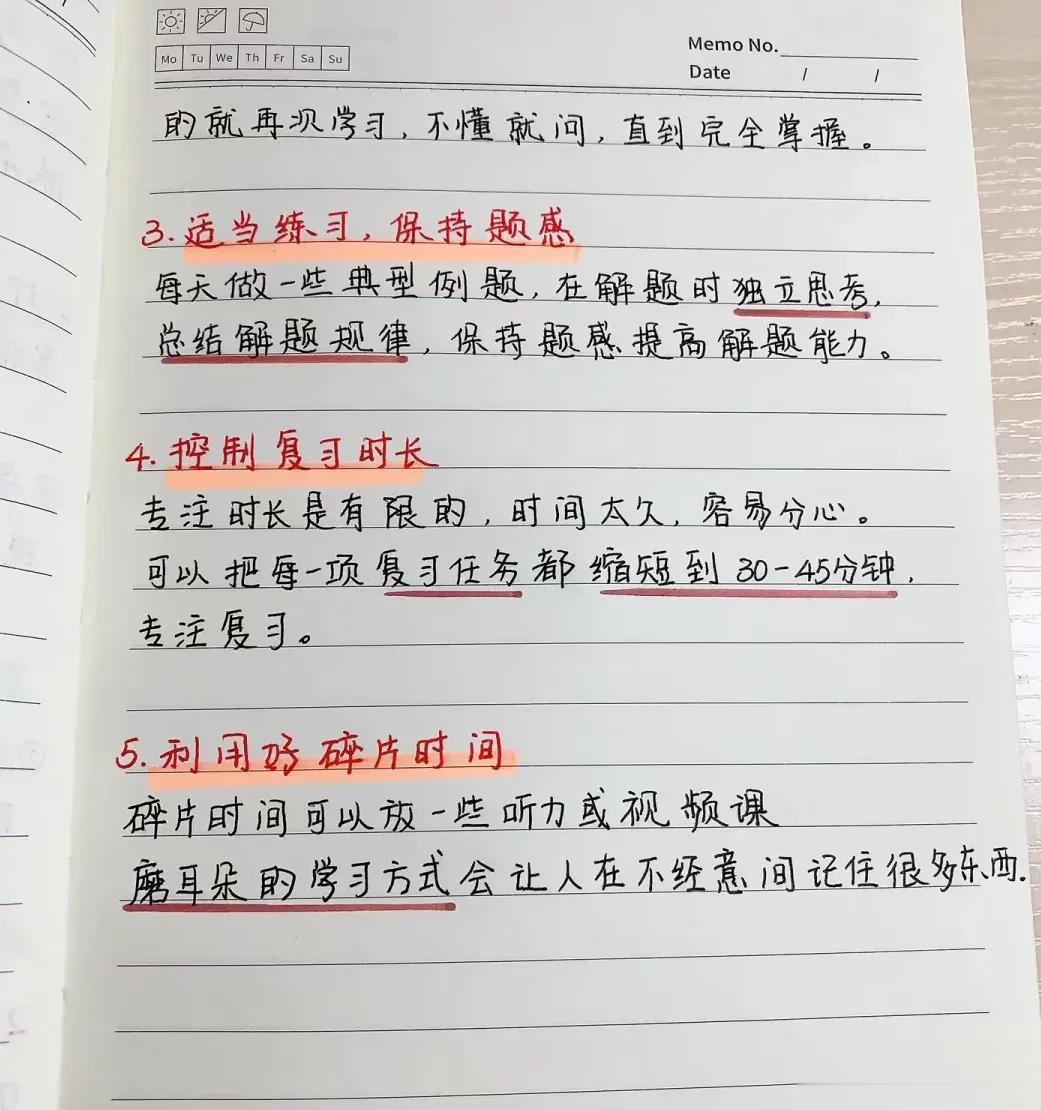 Mo Tu We Th Fr Sa Su
Memo No.
Date / /
的就再次学习，不懂就问，直到完全掌握。
3.适当练习，保持题感
每天做一些典型例题，在解题时独立思考，
总结解题规律，保持题感提高解题能力。
4.控制复习时长
专注时长是有限的，时间太久，容易分心。
可以把每一项复习任务都缩短到30-45分钟，
专注复习。
5.利用好碎片时间
碎片时间可以放一些听力或视频课
磨耳朵的学习方式会让人在不经意间记住很多东西.